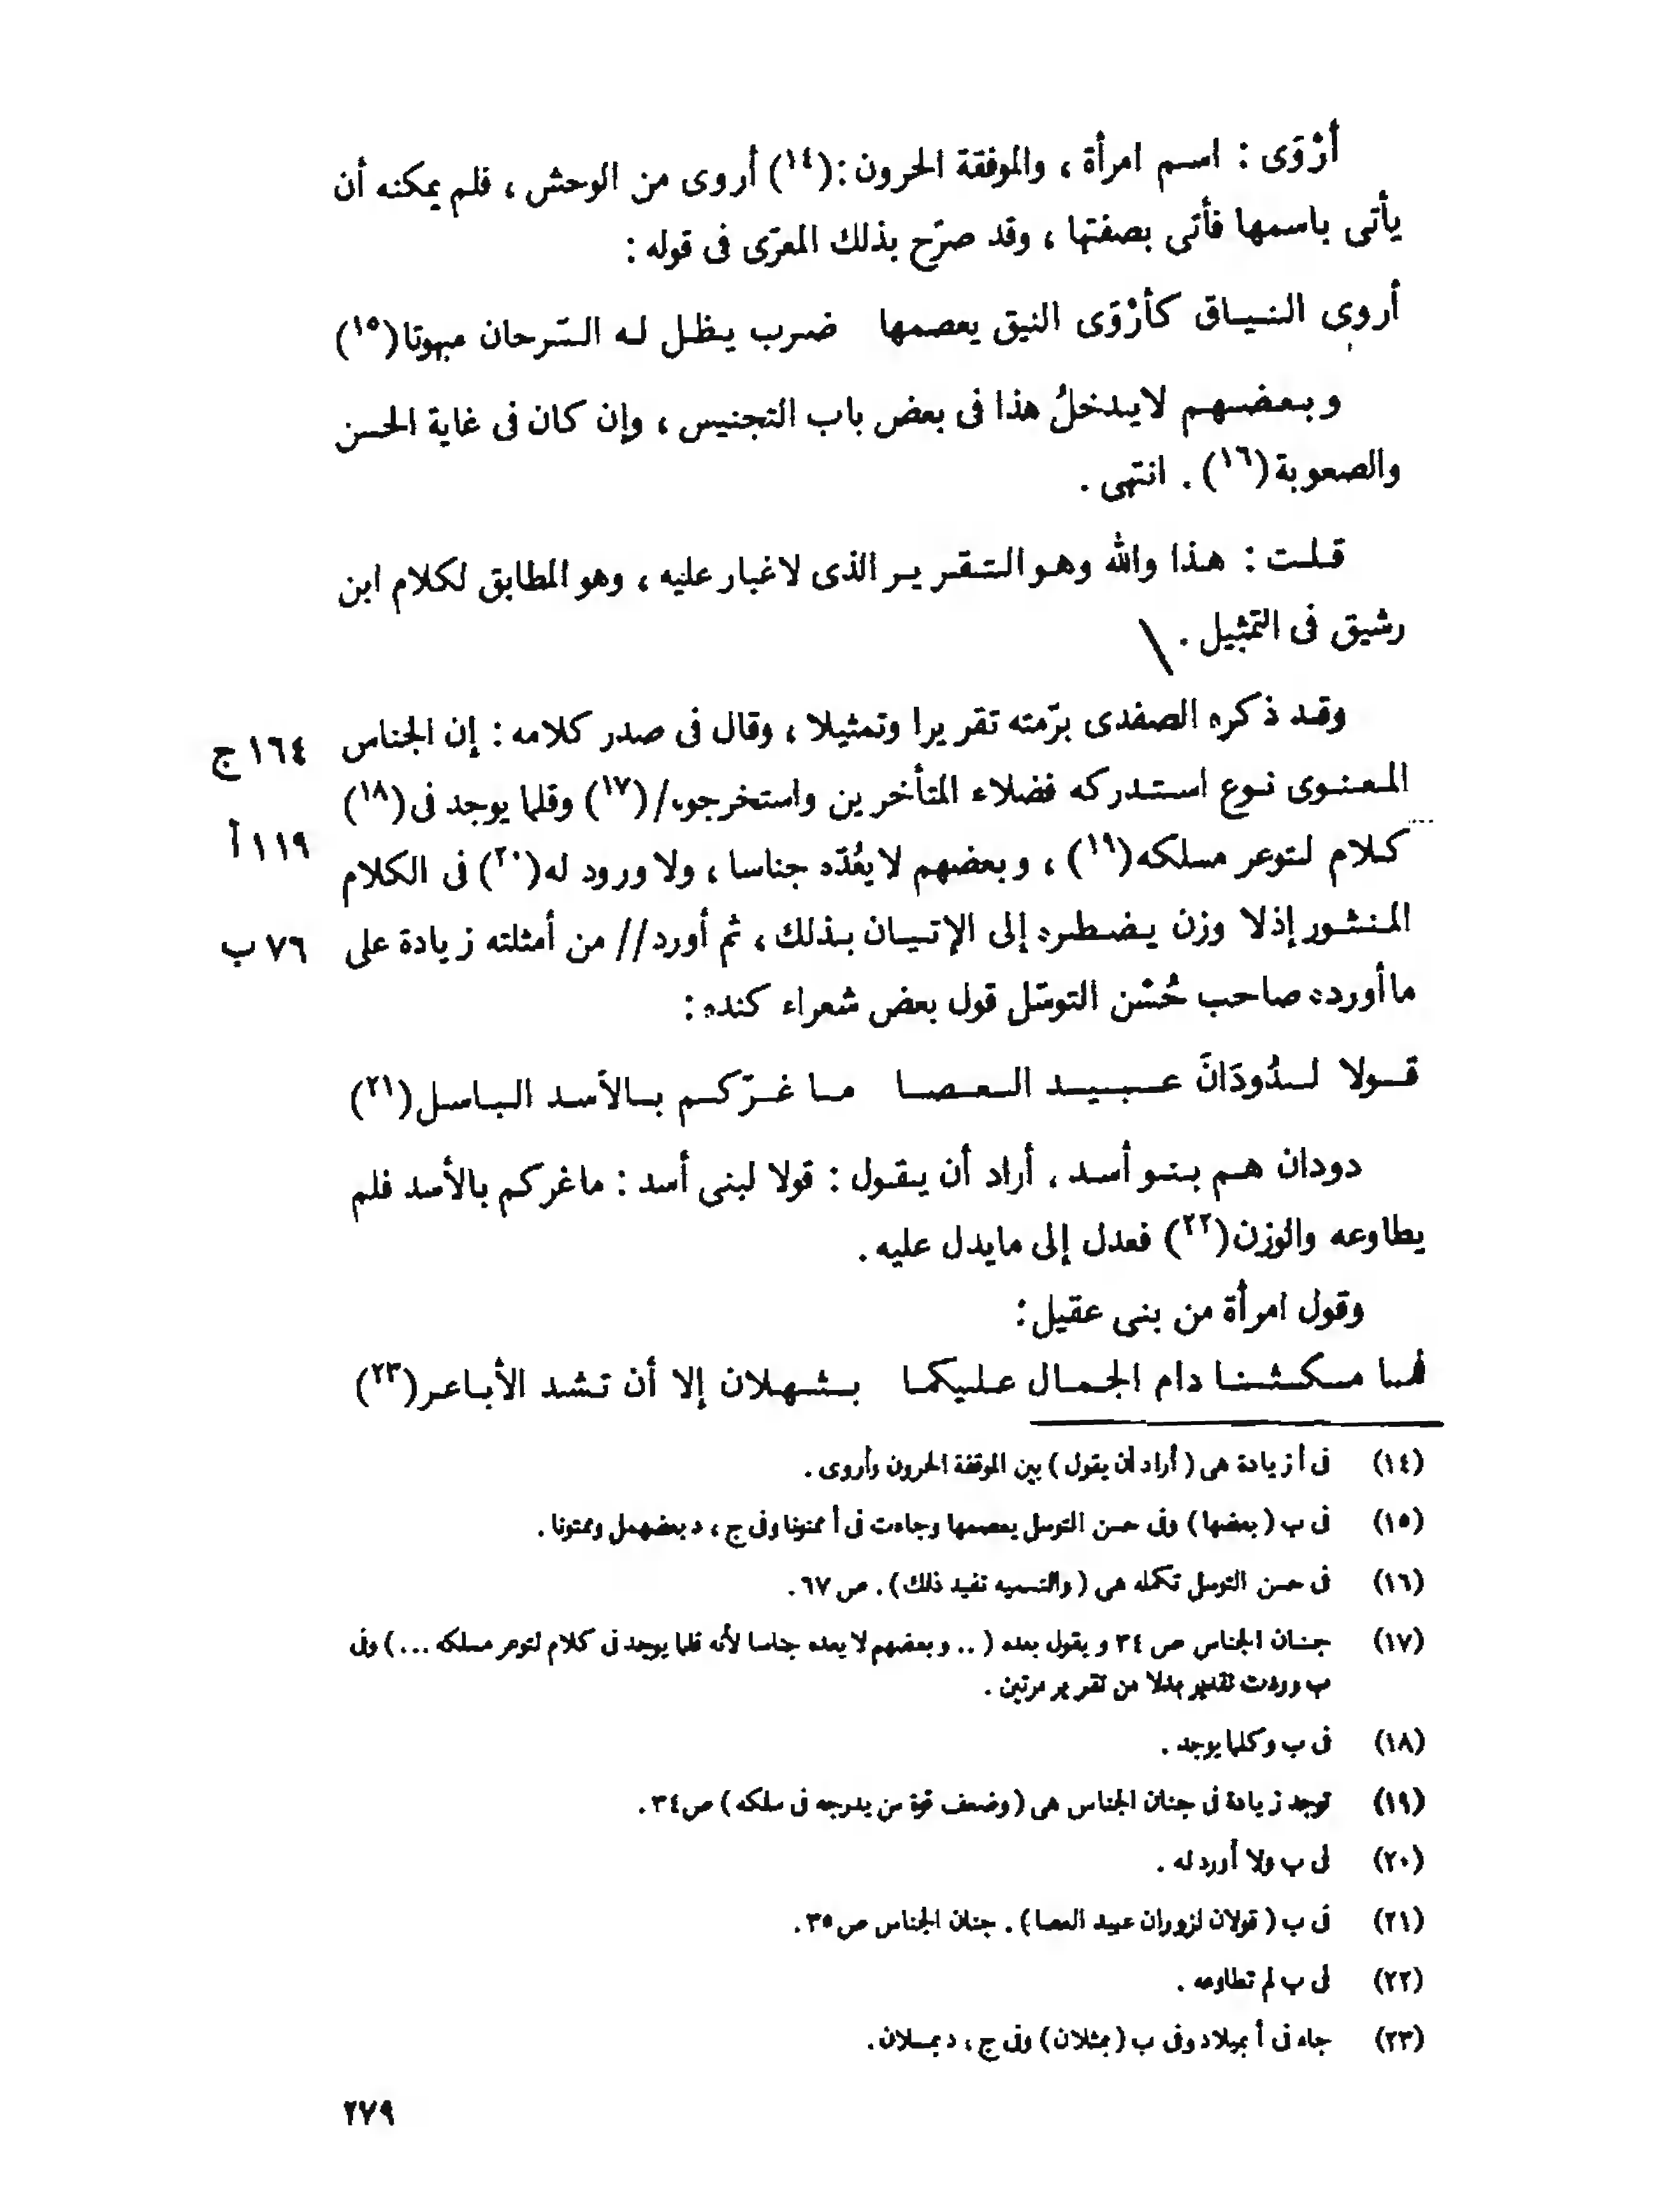 أرْوَى : اسم امرأة ، والموفقة الحرون :(١٤) أروى من الوحش ، فلم يمكنه أن
يأتى باسمها فأتى بصفتها ، وقد صرّح بذلك المعرّى فى قوله :
أروى النياق كأرْوَى النيق يعصمها ضرب يظل له السّرحان مبهوتا(١٥)
وبعضهم لايدخلُ هذا فى بعض باب التجنيس ، وإن كان فى غاية الحسن
والصعوبة(١٦) . انتهى .
قلت : هذا والله وهو التقرير الذى لاغبار عليه ، وهو المطابق لكلام ابن
رشيق فى التمثيل . \
وقد ذكره الصفدى برّمته تقريرا وتمثيلا ، وقال فى صدر كلامه : إن الجناس ١٦٤ ج
المعنوى نوع استدركه فضلاء المتأخرين واستخرجوه/(١٧) وقلما يوجد فى(١٨)
كلام لتوعر مسلكه(١٩) ، وبعضهم لايعُدّه جناسا ، ولا ورود له(٢٠) فى الكلام ١١٩ أ
المنثور إذلا وزن يضطره إلى الإتيان بذلك ، ثم أورد// من أمثلته زيادة على ٧٦ ب
ماأورده صاحب حُسْن التوسّل قول بعض شعراء كنده :
قولا لدُودَانَ عبيد العصا ما غرّكم بالأسد الباسل(٢١)
دودان هم بنو أسد . أراد أن يقول : قولا لبنى أسد : ماغركم بالأسد فلم
يطاوعه والوزن(٢٢) فعدل إلى مايدل عليه .
وقول امرأة من بنى عقيل :
فما مكثنا دام الجمال عليكما بثهلان إلا أن تشد الأباعر(٢٣)
(١٤) فى أ زيادة هى ( أراد أن يقول ) بين الموقفة الحرون وأروى .
(١٥) فى ب ( بعضها ) وفى حسن التوسل يعصمها وجاءت فى أ ممتونا وفى ج ، د بعضهمل وممتونا .
(١٦) فى حسن التوسل تكمله هى ( والتسميه تفيد ذلك ) . ص ٦٧ .
(١٧) جنان الجناس ص ٣٤ ويقول بعده ( .. وبعضهم لا يعده جناسا لأنه قلما يوجد فى كلام لتوعر مسلكه ... ) وفى
ب وردت تقدير بدلا من تقرير مرتين .
(١٨) فى ب وكلما يوجد .
(١٩) توجد زيادة فى جنان الجناس هى ( وضعف قوة من يدرجه فى سلكه ) ص ٣٤ .
(٢٠) فى ب ولا أورد له .
(٢١) فى ب ( قولان لزوران عبيد العصا ) . جنان الجناس ص ٣٥ .
(٢٢) فى ب لم تطاوعه .
(٢٣) جاء فى أ بميلاد وفى ب ( بمثلان ) وفى ج ، د بمسلان .
٢٧٩